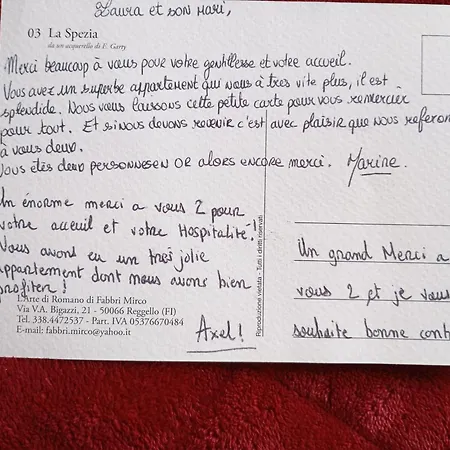 Laura et son mari,
03 La Spezia
da un acquerello di E. Garry
Merci beaucoup à vous pour votre gentillesse et votre accueil.
Vous avez un superbe appartement qui nous à tres vite plus, il est
splendide. Nous vous laissons cette petite carte pour vous remercier
pour tout. Et si nous devons revenir c'est avec plaisir que nous referon
à vous deux.
Vous etês deux personnes en OR alors encore merci. Marine.
Un énorme merci a vous 2 pour
votre acceuil et votre Hospitalité!
Vous avont eu un tres jolie
appartement dont nous avons bien
profiter!
L'Arte di Romano di Fabbri Mirco
Via V.A. Bigazzi, 21 - 50066 Reggello (FI)
Tel. 338.4472537 - Part. IVA 05376670484
E-mail: fabbri.mirco@yahoo.it
Axel!
Riproduzione vietata - Tutti i diritti riservati
Un grand Merci a
vous 2 et je vous
souhaite bonne cont